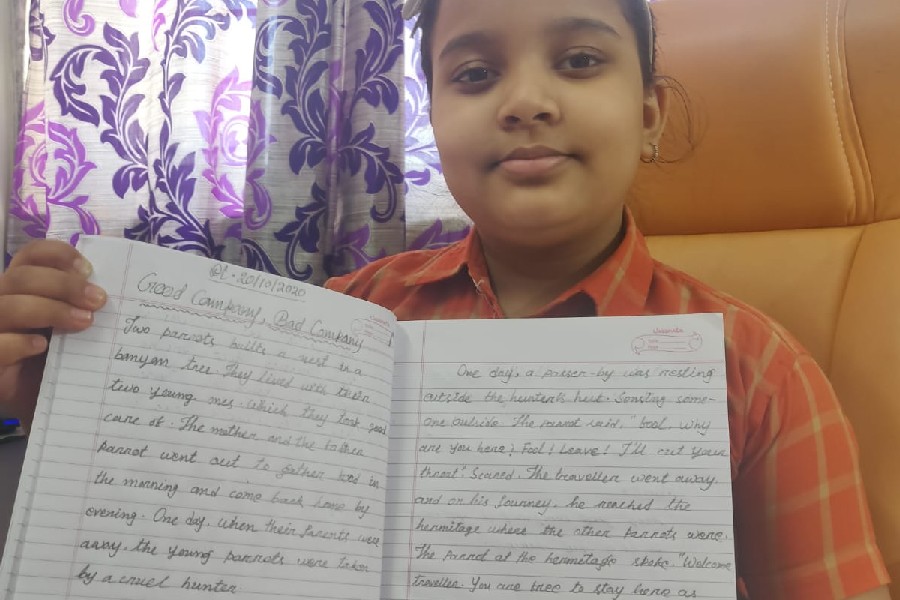 Dt. 20/10/2020
Good Company, Bad Company
Two parrots builts a nest in a
banyan tree. They lived with their
two young mes. which they took good
care of. The mother and the father
parrot went out to gather food in
the morning and come back home by
evening. One day, when their parents were
away. the young parrots were taken
by a cruel hunter
One day, a passer-by was resting
outside the hunter's hut. Sensing some-
one outside The parrot said, "Fool, why
are you here? Fool! Leave! I'll cut your
throat". Scared, The traveller went away
and on his Journey, he reached the
hermitage where the other parrots were.
The parrot at the hermitage spoke. "Welcome
traveller. You are free to stay here as